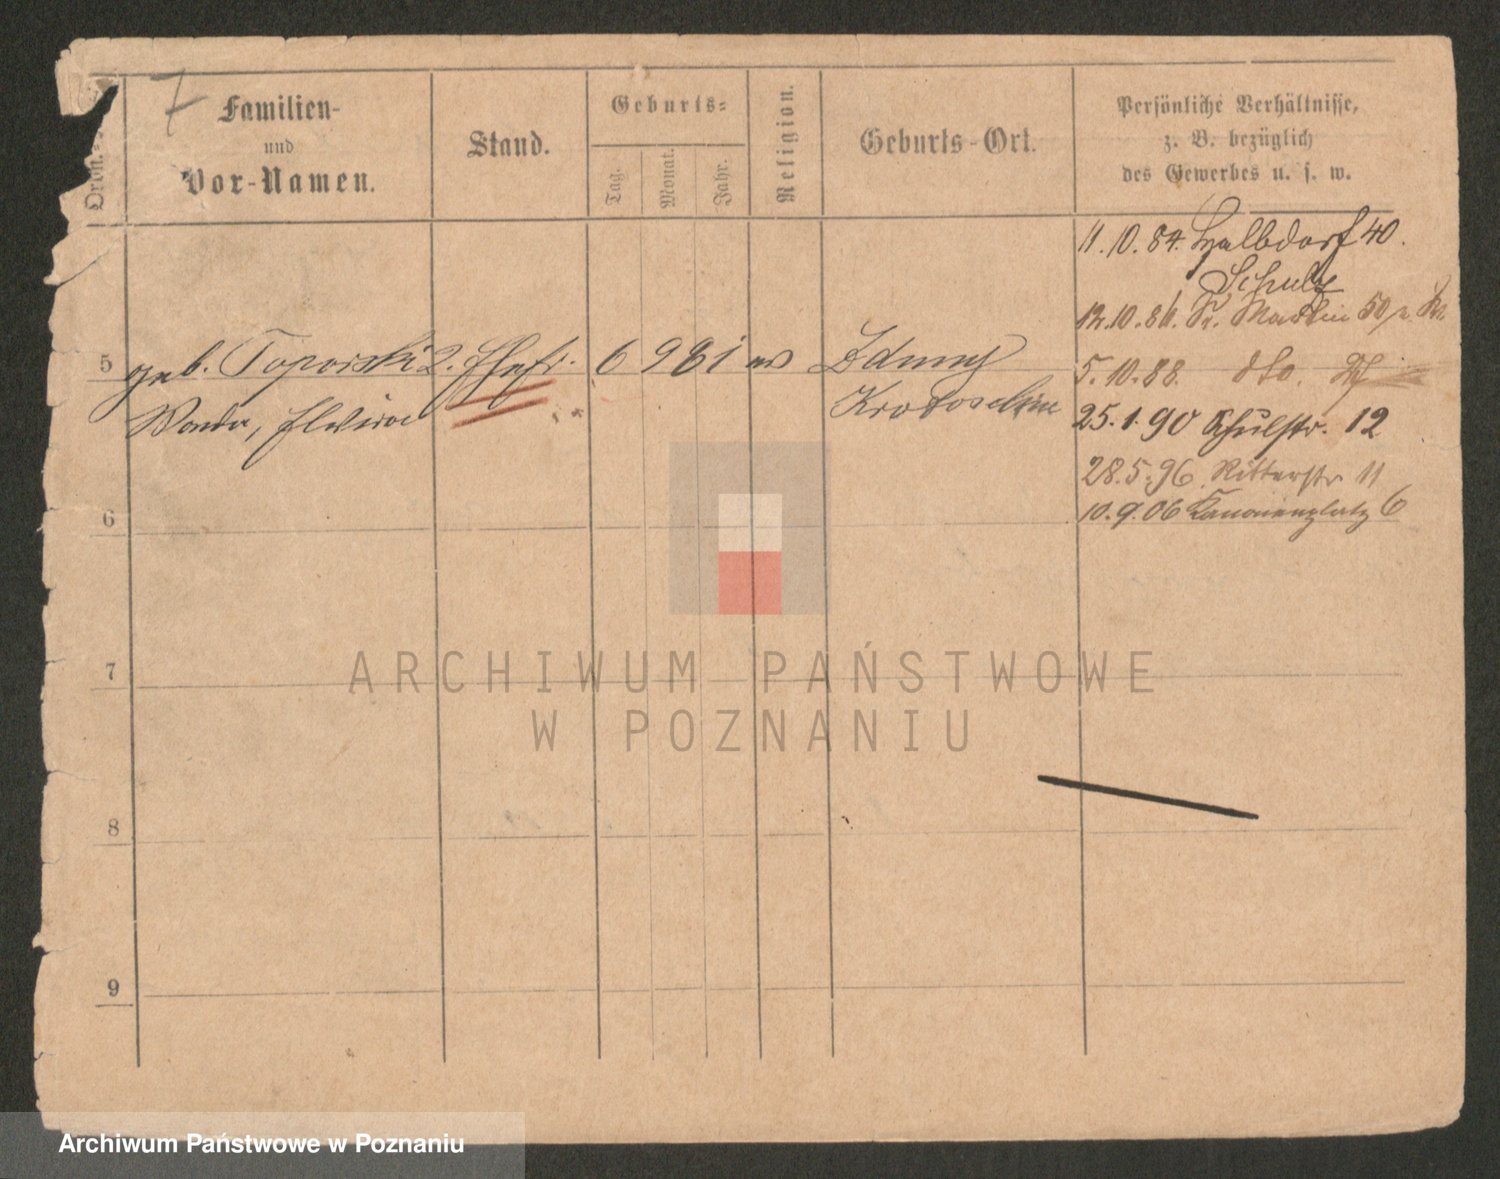 7
Ordn.-
Familien-
und
Vor-Namen.
Stand.
Geburts-
Tag.
Monat.
Jahr.
Religion.
Geburts-Ort.
Persönliche Verhältnisse,
z. B. bezüglich
des Gewerbes u. s. w.
11.10.84. Halbdorf 40.
Schulz
12.10.86. St. Martin 50
5 geb. Toporski 2. Ehefr. 6 9 61 ev Zduny
5.10.88. dto.
Wanda, Elvira
Krotoschin
25.1.90 Schulstr. 12
28.5.96 Ritterstr 11
6
10.9.06 Kanonenplatz 6
ARCHIWUM PAŃSTWOWE
W POZNANIU
7
8
9
Archiwum Państwowe w Poznaniu